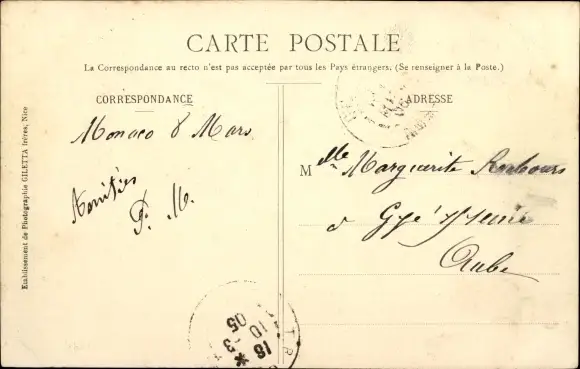 CARTE POSTALE
La Correspondance au recto n'est pas acceptée par tous les Pays étrangers. (Se renseigner à la Poste.)
CORRESPONDANCE
ADRESSE
Monaco 8 Mars
Amitiés
P. M.
Mlle Marguerite
à Gyé s/ Seine
Aube
Etablissement de Photographie GILETTA frères, Nice
18
10
05